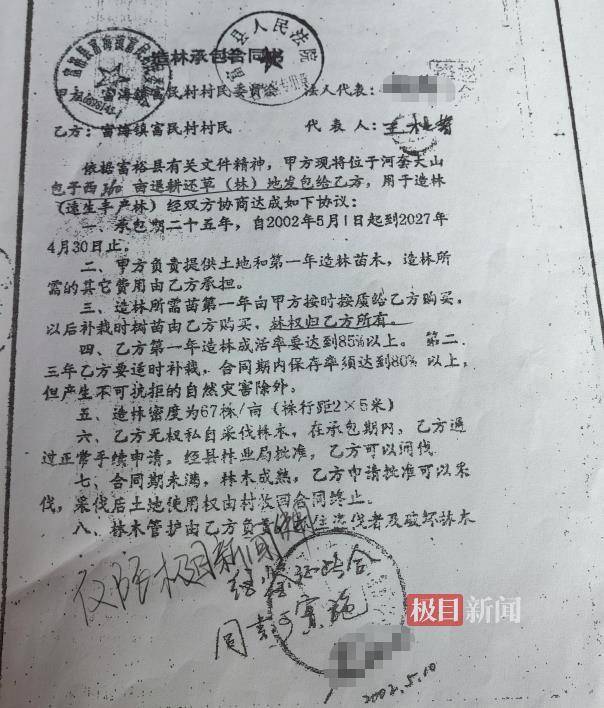 造林承包合同书
富裕县人民法院
甲方：富海镇富民村村民委员会 法人代表：
乙方：富海镇富民村村民 代 表 人：
依据富裕县有关文件精神，甲方现将位于河套大山
包子西360亩退耕还草（林）地发包给乙方，用于造林
（速生丰产林）经双方协商达成如下协议：
一、承包期二十五年，自2002年5月1日起到2027年
4月30日止。
二、甲方负责提供土地和第一年造林苗木，造林所
需的其它费用由乙方承担。
三、造林所需苗第一年由甲方按时按质给乙方购买，
以后补栽时树苗由乙方购买，林权归乙方所有。
四、乙方第一年造林成活率要达到85%以上。第二、
三年乙方要适时补栽，合同期内保存率须达到80%以上，
但产生不可抗拒的自然灾害除外。
五、造林密度为67株/亩（株行距2×5米）
六、乙方无权私自采伐林木，在承包期内，乙方通
过正常手续申请，经县林业局批准，乙方可以间伐
七、合同期未满，林木成熟，乙方申请批准可以采
伐，采伐后土地使用权由村收回合同终止。
八、林木管护由乙方负责 盗伐者及破坏林木
仅限极目新闻
同意 实施
极目新闻
2002.5.10